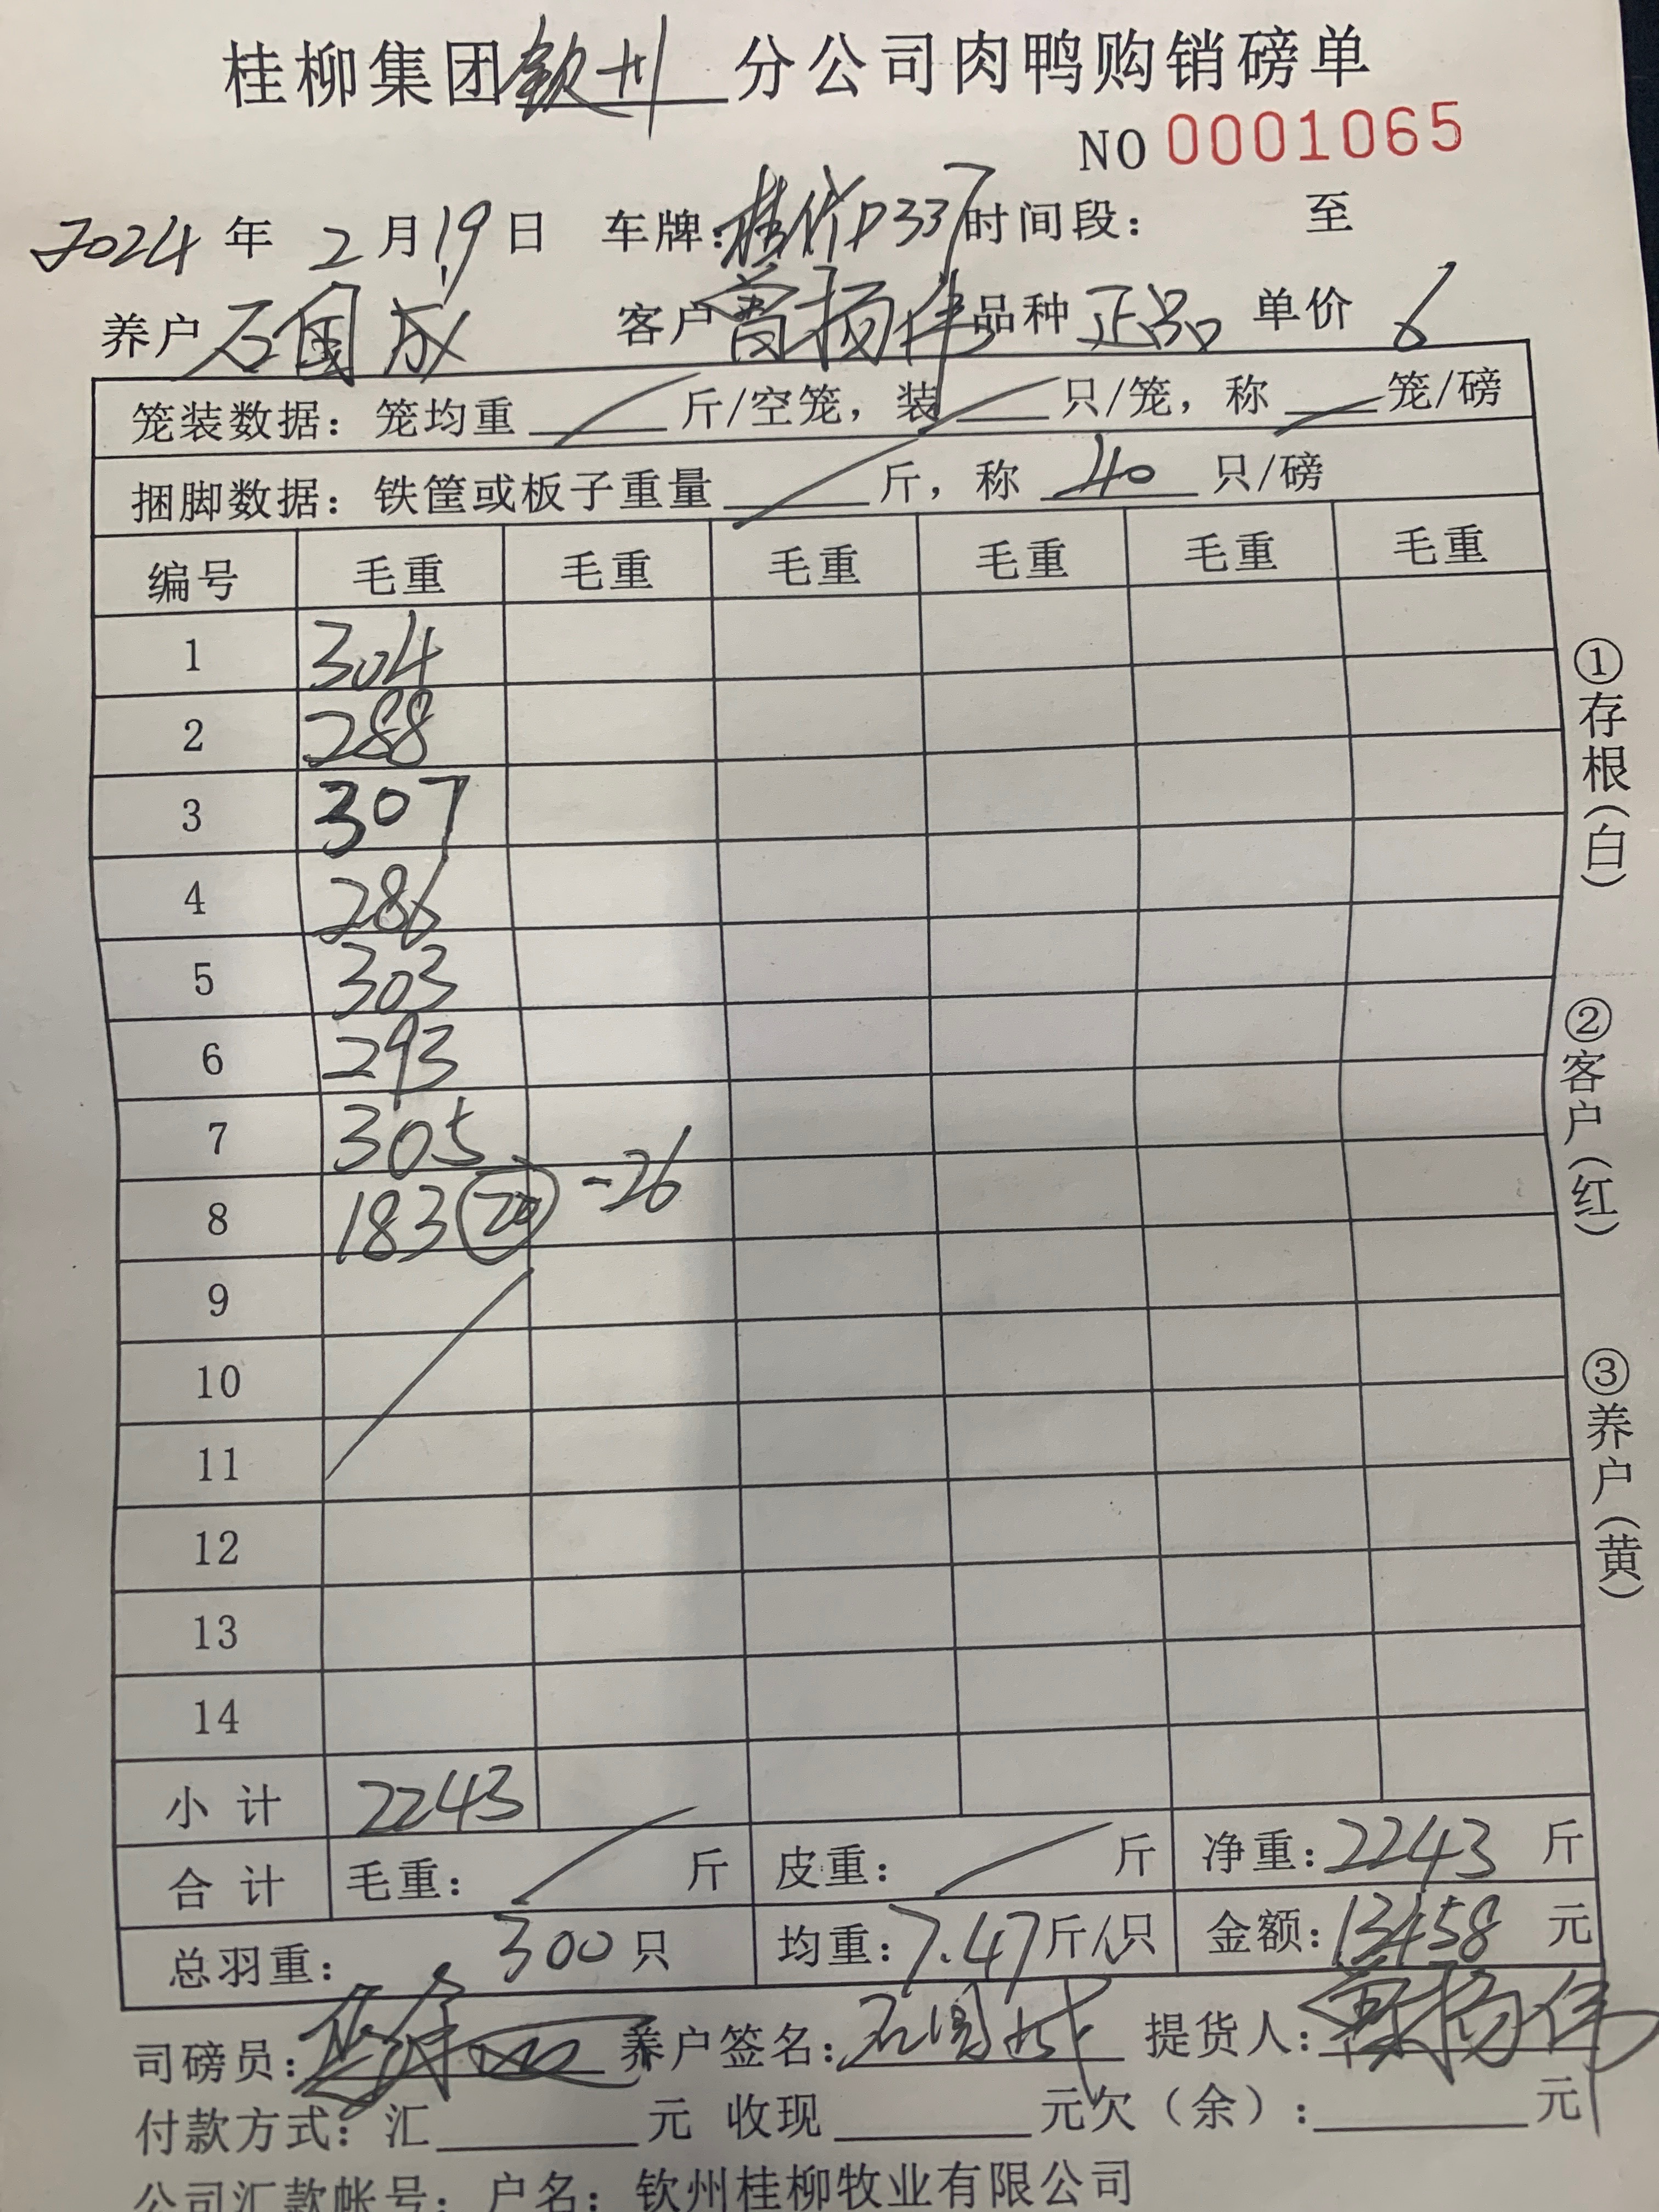 桂柳集团钦州分公司肉鸭购销磅单
NO 0001065
2024 年 2 月 19 日 车牌: D337 时间段: 至
养户 石国成 客户 曾扬伟 品种 正品 单价 6
笼装数据: 笼均重 斤/空笼, 装 只/笼, 称 笼/磅
捆脚数据: 铁筐或板子重量 斤, 称 40 只/磅
编号 毛重 毛重 毛重 毛重 毛重 毛重
1 304
2 288
3 307
4 286
5 303
6 293
7 305
8 183 20 -26
9
10
11
12
13
14
小计 2243
合计 毛重: 斤 皮重: 斤 净重: 2243 斤
总羽重: 300 只 均重: 7.47 斤/只 金额: 13458 元
司磅员: 养户签名: 石国成 提货人: 曾扬伟
付款方式: 汇 元 收现 元欠（余）: 元
公司汇款帐号: 户名: 钦州桂柳牧业有限公司
①存根（白）
②客户（红）
③养户（黄）